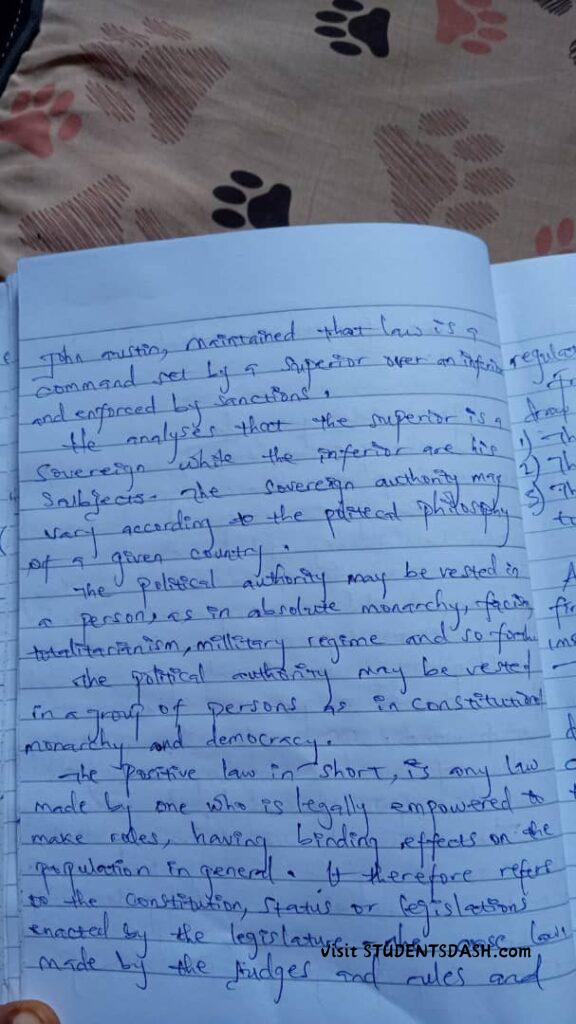 John Austin, maintained that law is a
command set by a superior over an inferior
and enforced by sanctions.
He analyses that the superior is a
Sovereign while the inferior are his
Subjects. The sovereign authority may
vary according to the political philosphy
of a given country.
The political authority may be vested in
a person, as in absolute monarchy,
totalitarianism, millitary regime and so forth
The political authority may be vested
in a group of persons as in constitutional
monarchy and democracy.
The positive law in short, is any law
made by one who is legally empowered to
make rules, having binding effects on the
population in general. It therefore refers
to the constitution, status or legislations
enacted by the legislature, the case law
made by the Judges and rules and
regular
draw
1) Th
2) Th
3) Th
Visit STUDENTSDASH.com